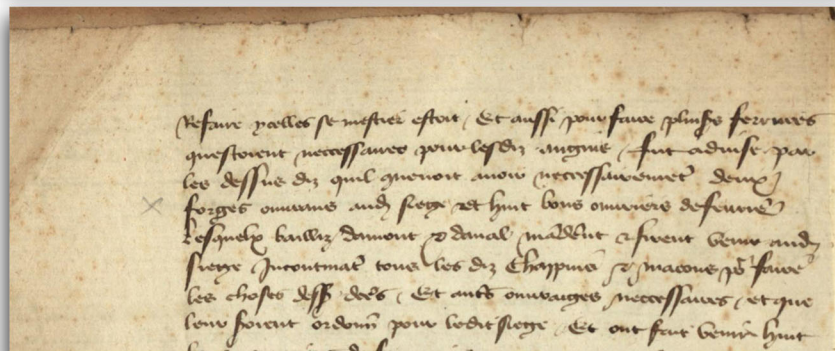 Refaire ycelles se mestier estoit / Et aussi pour faire plusrs ferrures
questoient neccessaires pour lesdiz engins / fut advise par
les dessus diz quil quenoit avoir neccessairemet deux
forges ouvrans aud siege et huit bons ouvriers de
Lesquelx bailliz damont & daval manderent & firent venir aud
siege Incontinat tous les diz Chappuis & macons pr faire
les choses dess dces / Et auts ouvraiges neccessaires / et que
leur soient ordonn pour ledit siege / Et ont fait venir huit